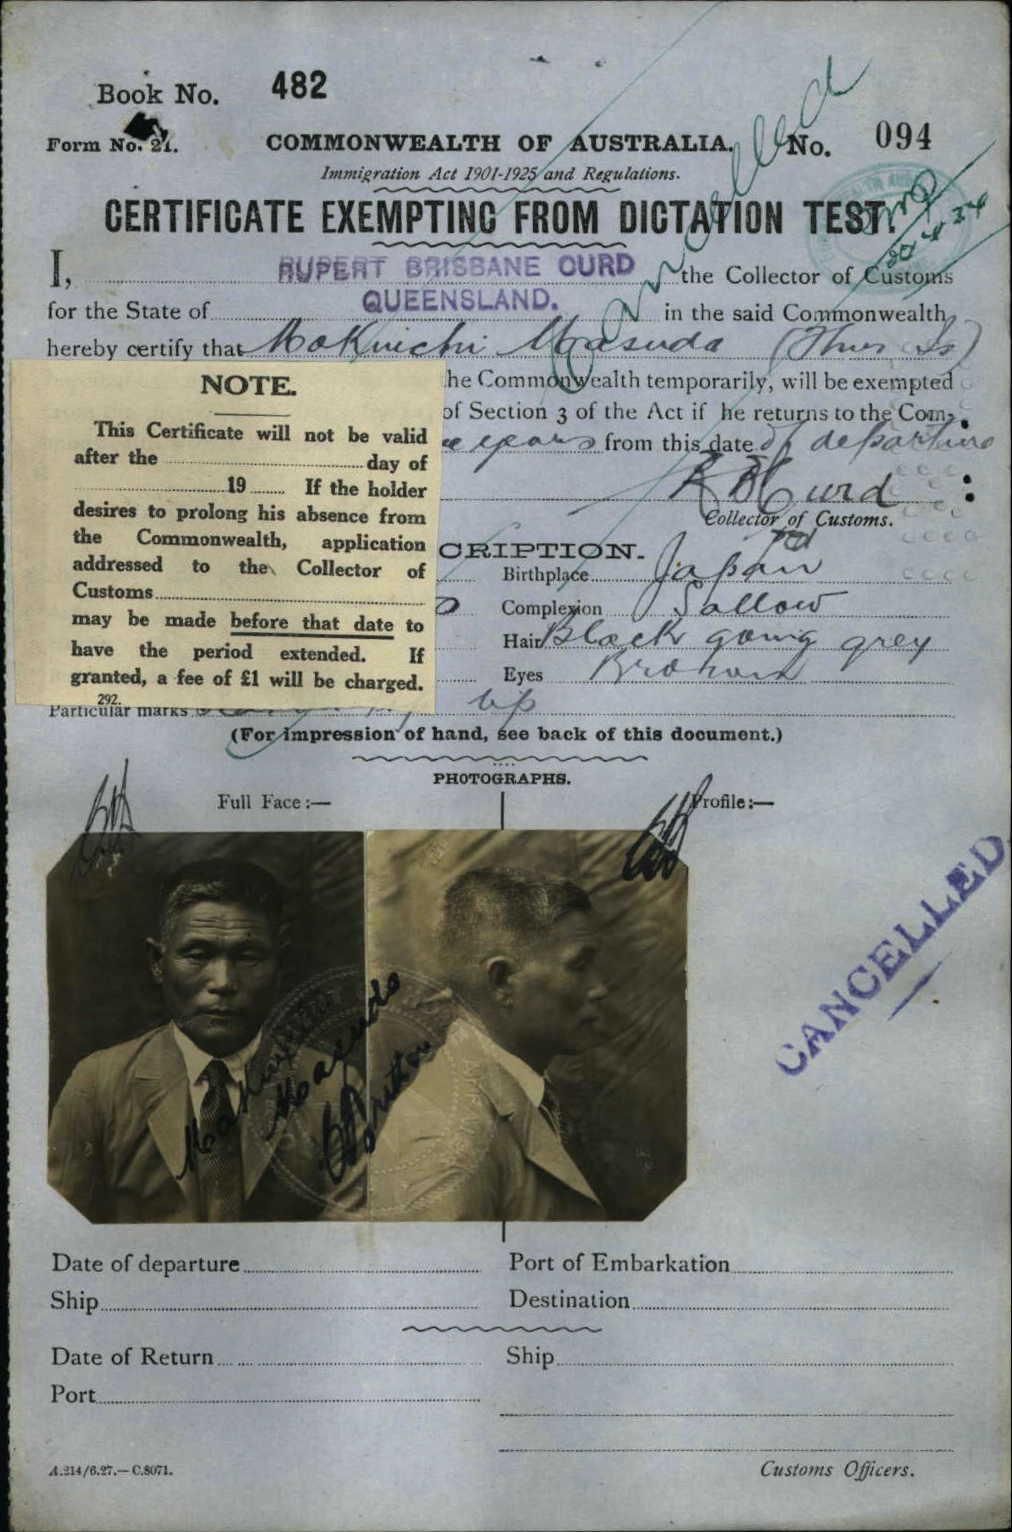 Book No. 482
Form No. 21. COMMONWEALTH OF AUSTRALIA. No. 094
Immigration Act 1901-1925 and Regulations.
CERTIFICATE EXEMPTING FROM DICTATION TEST.
Cancelled
20.4.34
I, RUPERT BRISBANE CURD the Collector of Customs
for the State of QUEENSLAND. in the said Commonwealth
hereby certify that Makuichi Masuda (Thurs Is)
he Commonwealth temporarily, will be exempted
of Section 3 of the Act if he returns to the Com-
years from this date of departure
R B Curd
Collector of Customs.
NOTE.
This Certificate will not be valid
after the day of
19 If the holder
desires to prolong his absence from
the Commonwealth, application
addressed to the Collector of
Customs
may be made before that date to
have the period extended. If
granted, a fee of £1 will be charged.
292.
CRIPTION.
Birthplace Japan
Complexion Sallow
Hair Black going grey
Eyes Brown
Particular marks lip
(For impression of hand, see back of this document.)
PHOTOGRAPHS.
Full Face:— Profile:—
Makuichi
Masuda
CANCELLED
Date of departure Port of Embarkation
Ship Destination
Date of Return Ship
Port
A.214/6.27.—C.8071. Customs Officers.